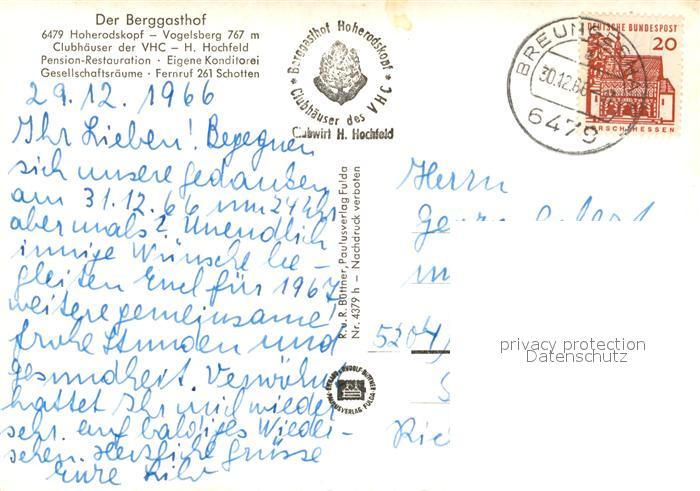 Der Berggasthof
6479 Hoherodskopf – Vogelsberg 767 m
Clubhäuser der VHC – H. Hochfeld
Pension-Restauration · Eigene Konditorei
Gesellschaftsräume · Fernruf 261 Schotten
Berggasthof Hoherodskopf
Clubhäuser des VHC
Clubwirt H. Hochfeld
30.12.66
6479
DEUTSCHE BUNDESPOST
20
29.12.1966
Ihr Lieben! Begegnen
sich unsere Gedanken
am 31.12.66 um 24 Uhr
abermals? Unendlich
innige Wünsche be-
gleiten Euch für 1967
weitere gemeinsame
frohe Stunden und
Gesundheit. Verwöhnt
hattet Ihr mich wieder
sehr. Auf baldiges Wieder-
sehen. Herzliche Grüsse
Eure
R. u. R. Büttner, Paulusverlag Fulda
Nr. 4379 h – Nachdruck verboten
Herrn
5204
privacy protection
Datenschutz